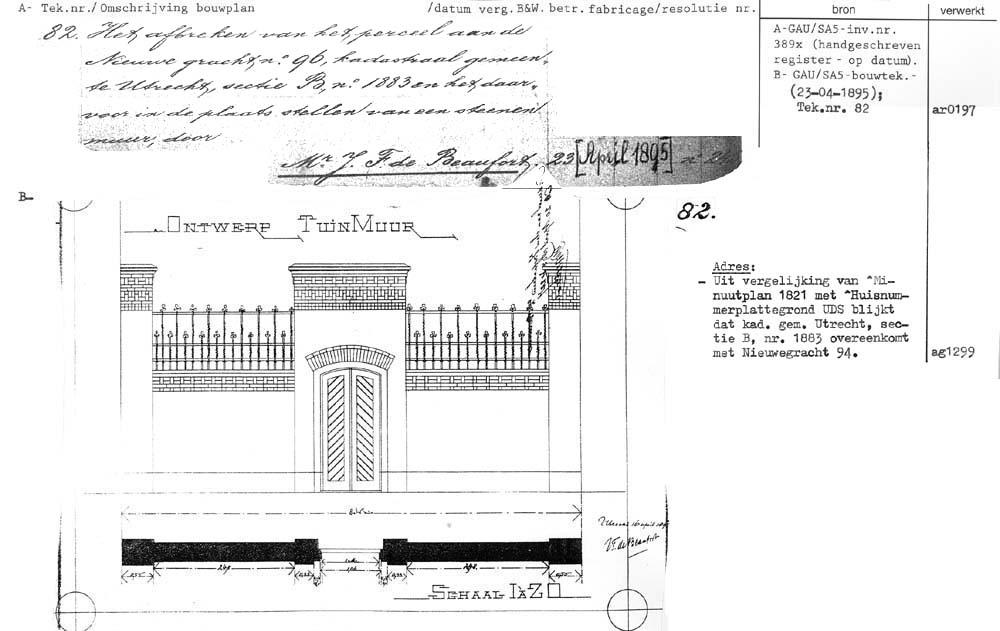 A- Tek.nr./Omschrijving bouwplan /datum verg.B&W. betr.fabricage/resolutie nr.
bron
verwerkt
82. Het afbreken van het perceel aan de
Nieuwe gracht, n.º 96, kadastraal gemeen-
te Utrecht, sectie B, n.º 1883 en het daar-
voor in de plaats stellen van een steenen
muur, door
Mr J. F de Beaufort. 23 [April 1895]
A-GAU/SA5-inv.nr.
389x (handgeschreven
register - op datum).
B- GAU/SA5-bouwtek.-
(23-04-1895);
Tek.nr. 82
ar0197
B-
82.
ONTWERP TUINMUUR
Adres:
- Uit vergelijking van ^Mi-
nuutplan 1821 met ^Huisnum-
merplattegrond UDS blijkt
dat kad. gem. Utrecht, sec-
tie B, nr. 1883 overeenkomt
met Nieuwegracht 94.
ag1299
de Beaufort
SCHAAL 1 à 20